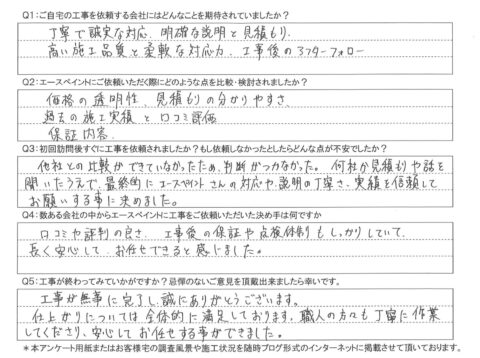 Q1：ご自宅の工事を依頼する会社にはどんなことを期待されていましたか？
丁寧で誠実な対応、明確な説明と見積もり、
高い施工品質と柔軟な対応力、工事後のアフターフォロー
Q2：エースペイントにご依頼いただく際にどのような点を比較・検討されましたか？
価格の透明性、見積もりの分かりやすさ、
過去の施工実績と口コミ評価
保証内容
Q3：初回訪問後すぐに工事を依頼されましたか？もし依頼しなかったとしたらどんな点が不安でしたか？
他社との比較ができていなかったため、判断がつかなかった。何社か見積もりや話を
聞いたうえで、最終的にエースペイントさんの対応や、説明の丁寧さ、実績を信頼して
お願いする事に決めました。
Q4：数ある会社の中からエースペイントに工事をご依頼いただいた決め手は何ですか
口コミや評判の良さ、工事後の保証や点検体制もしっかりしていて、
長く安心して、お任せできると感じました。
Q5：工事が終わってみていかがですか？忌憚のないご意見を頂戴出来ましたら幸いです。
工事が無事に完了し、誠にありがとうございます。
仕上がりについては全体的に満足しております。職人の方々も丁寧に作業
してくださり、安心してお任せする事ができました。
＊本アンケート用紙またはお客様宅の調査風景や施工状況を随時ブログ形式のインターネットに掲載させて頂いております。